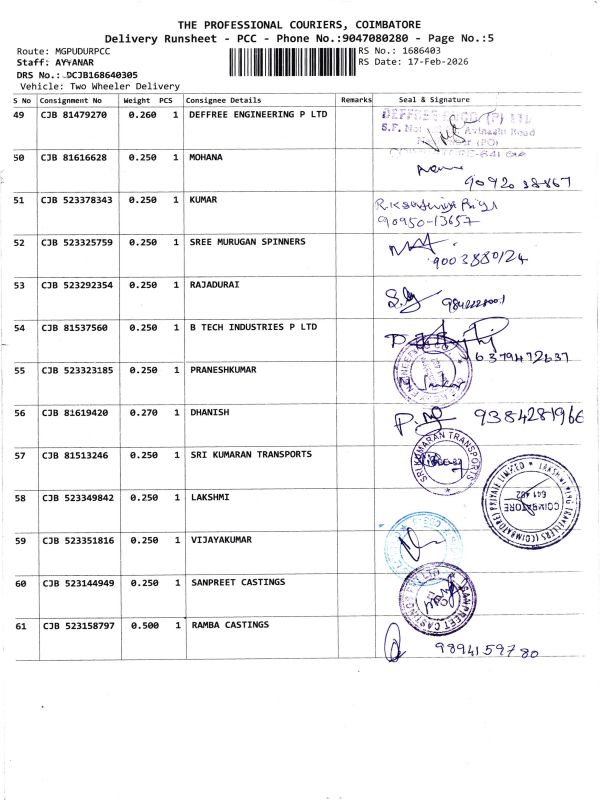 THE PROFESSIONAL COURIERS, COIMBATORE
Delivery Runsheet - PCC - Phone No.:9047080280 - Page No.:5
Route: MGPUDURPCC RS No.: 1686403
Staff: AYYANAR RS Date: 17-Feb-2026
DRS No.: PCJB168640305
Vehicle: Two Wheeler Delivery
S No Consignment No Weight PCS Consignee Details Remarks Seal & Signature
49 CJB 81479270 0.260 1 DEFFREE ENGINEERING P LTD
DEFFREE ENGG. (P) LTD
S.F. No: Avinashi Road
(PO)
50 CJB 81616628 0.250 1 MOHANA
90920 38867
51 CJB 523378343 0.250 1 KUMAR
90950-13657
52 CJB 523325759 0.250 1 SREE MURUGAN SPINNERS
9003880124
53 CJB 523292354 0.250 1 RAJADURAI
54 CJB 81537560 0.250 1 B TECH INDUSTRIES P LTD
6379472637
55 CJB 523323185 0.250 1 PRANESHKUMAR
56 CJB 81619420 0.270 1 DHANISH
9384281966
57 CJB 81513246 0.250 1 SRI KUMARAN TRANSPORTS
SRI KUMARAN TRANSPORTS
58 CJB 523349842 0.250 1 LAKSHMI
COIMBATORE
641 402
59 CJB 523351816 0.250 1 VIJAYAKUMAR
60 CJB 523144949 0.250 1 SANPREET CASTINGS
SANPREET CASTINGS
61 CJB 523158797 0.500 1 RAMBA CASTINGS
9894159780